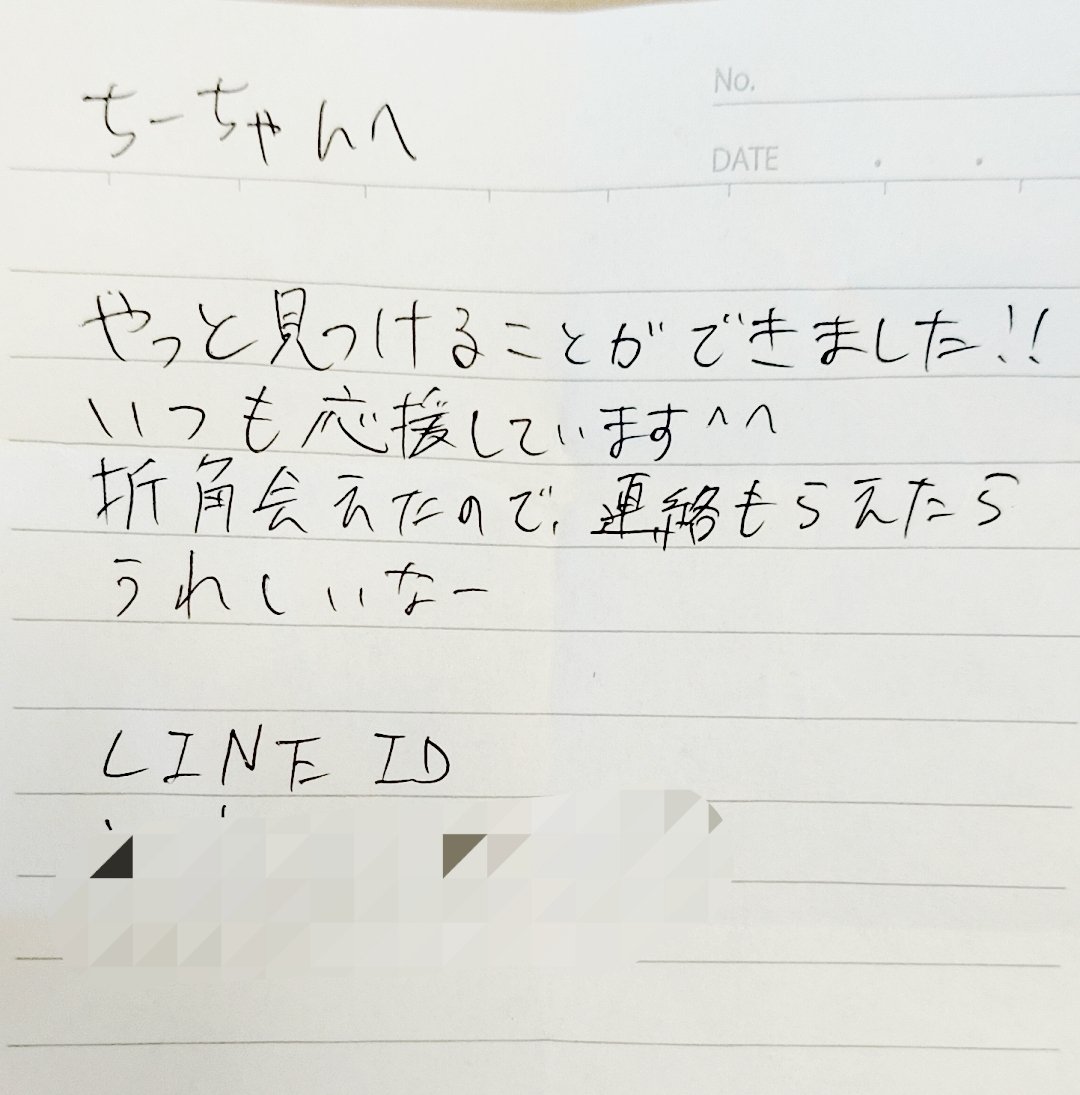 No.
DATE
ちーちゃんへ
やっと見つけることができました!!
いつも応援しています^^
折角会えたので、連絡もらえたら
うれしいなー
LINE ID